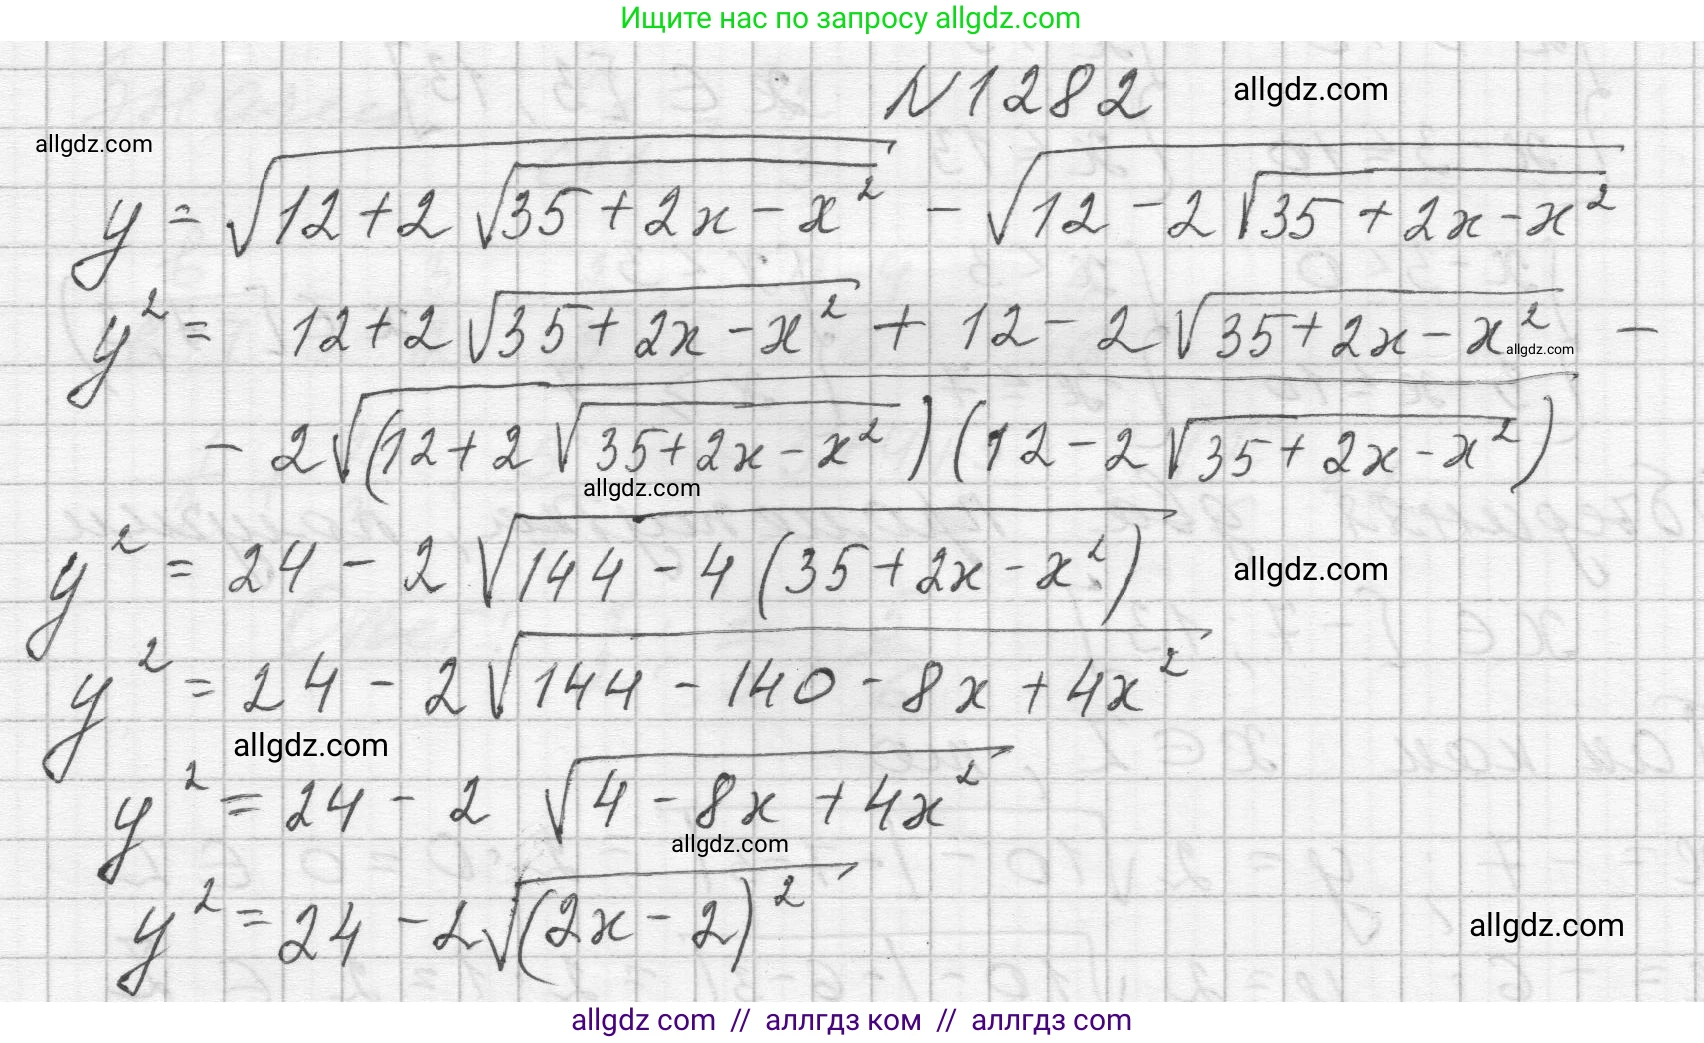 Ищите нас по запросу allgdz.com
N1282 allgdz.com
allgdz.com
y = √(12 + 2√(35 + 2x - x²)) - √(12 - 2√(35 + 2x - x²))
y² = 12 + 2√(35 + 2x - x²) + 12 - 2√(35 + 2x - x²) -
allgdz.com
- 2√((12 + 2√(35 + 2x - x²))(12 - 2√(35 + 2x - x²)))
allgdz.com
y² = 24 - 2√(144 - 4(35 + 2x - x²)) allgdz.com
y² = 24 - 2√(144 - 140 - 8x + 4x²)
allgdz.com
y² = 24 - 2√(4 - 8x + 4x²)
allgdz.com
y² = 24 - 2√((2x - 2)²) allgdz.com
allgdz com // аллгдз ком // аллгдз com